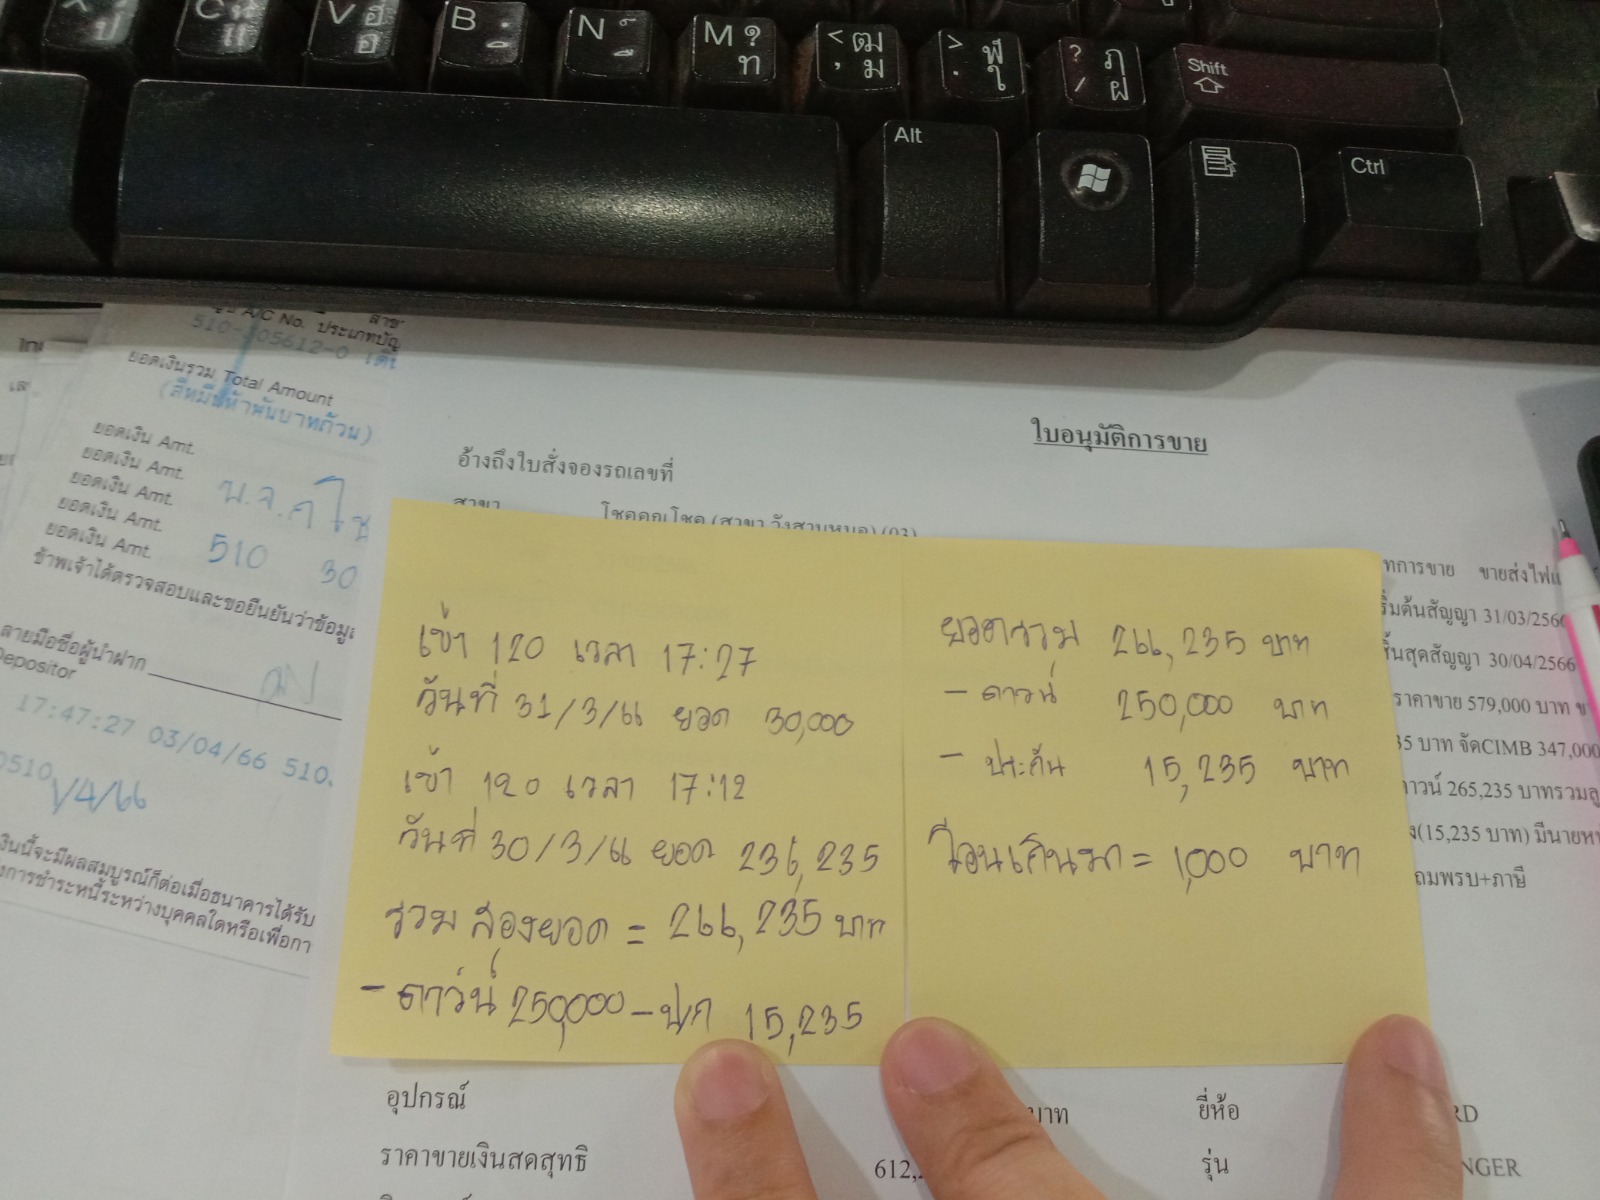 C
V อ
B
N
M ? ท
< ฒ , ม
> ฬ . ใ
? ฦ / ฝ
Shift
Alt
Ctrl
A/C No. ประเภทบัญ
ยอดเงินรวม Total Amount
(สี่หมื่นห้าพันบาทถ้วน)
ยอดเงิน Amt.
ยอดเงิน Amt.
ยอดเงิน Amt.
ยอดเงิน Amt.
ยอดเงิน Amt.
510 30
ข้าพเจ้าได้ตรวจสอบและขอยืนยันว่าข้อมู
ลายมือชื่อผู้นำฝาก
Depositor
17:47:27 03/04/66 510
0510
1/4/66
เงินนี้จะมีผลสมบูรณ์ก็ต่อเมื่อธนาคารได้รับ
งการชำระหนี้ระหว่างบุคคลใดหรือเพื่อกา
ใบอนุมัติการขาย
อ้างถึงใบสั่งจองรถเลขที่
สาขา โชคคุณโชค (สาขา วังสามหมอ) (03)
เข้า 120 เวลา 17:27
วันที่ 31/3/66 ยอด 30,000
เข้า 120 เวลา 17:12
วันที่ 30/3/66 ยอด 236,235
รวมสองยอด = 266,235 บาท
- ดาวน์ 250,000 - ปภ 15,235
ยอดรวม 266,235 บาท
- ดาวน์ 250,000 บาท
- ประกัน 15,235 บาท
โอนเกินมา = 1,000 บาท
ทการขาย ขายส่งไฟแ
ริ่มต้นสัญญา 31/03/2566
สิ้นสุดสัญญา 30/04/2566
ราคาขาย 579,000 บาท
35 บาท จัดCIMB 347,000
ดาวน์ 265,235 บาทรวมลู
ง(15,235 บาท) มีนายหน
ถมพรบ+ภาษี
อุปกรณ์ บาท ยี่ห้อ RD
ราคาขายเงินสดสุทธิ 612, รุ่น NGER